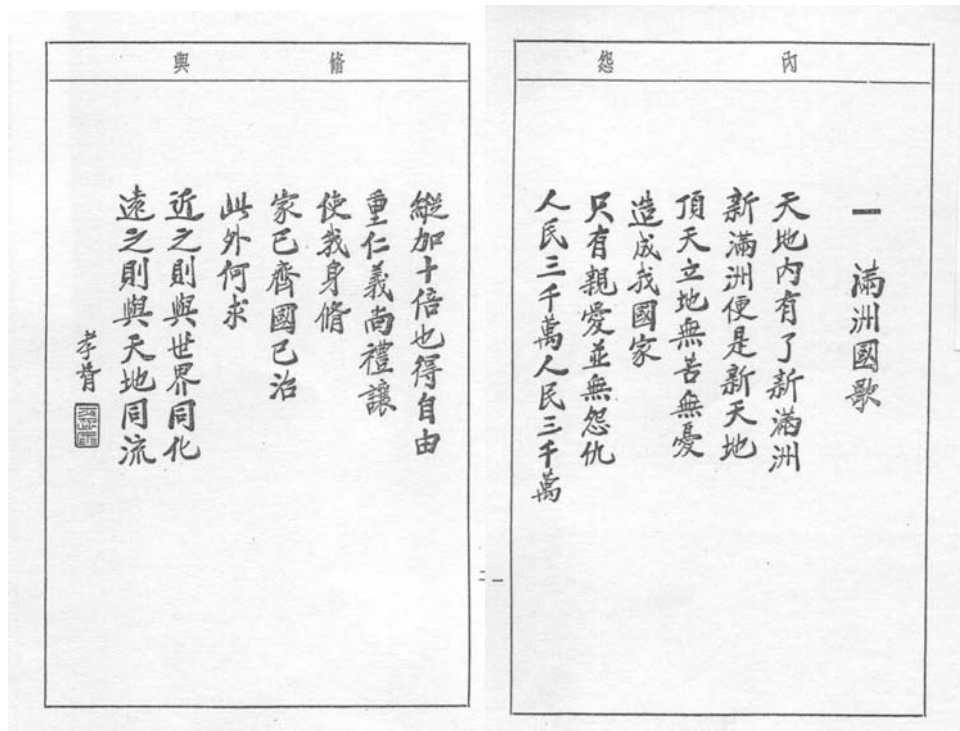 內 怨
一 滿洲國歌
天地內有了新滿洲
新滿洲便是新天地
頂天立地無苦無憂
造成我國家
只有親愛並無怨仇
人民三千萬人民三千萬
一
脩 與
縱加十倍也得自由
重仁義尚禮讓
使我身脩
家已齊國已治
此外何求
近之則與世界同化
遠之則與天地同流
孝胥
二